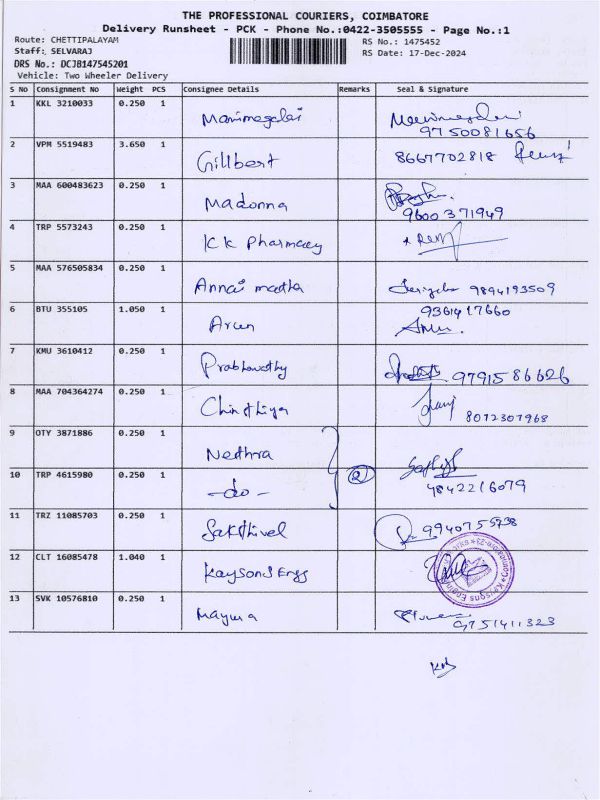 THE PROFESSIONAL COURIERS, COIMBATORE
Delivery Runsheet - PCK - Phone No.:0422-3505555 - Page No.:1
Route: CHETTIPALAYAM
Staff: SELVARAJ
DRS No.: DCJB147545201
Vehicle: Two Wheeler Delivery
RS No.: 1475452
RS Date: 17-Dec-2024
S No Consignment No Weight PCS Consignee Details Remarks Seal & Signature
1 KKL 3210033 0.250 1 Manimegalai
9750081656
2 VPM 5519483 3.650 1 Gillbert 8667702818
3 MAA 600483623 0.250 1 Madonna
9600371949
4 TRP 5573243 0.250 1 KK Pharmacy
5 MAA 576505834 0.250 1 Annai matha 9894193509
6 BTU 355105 1.050 1 Arun 9361417660
7 KMU 3610412 0.250 1 Prabhavathy 9791586626
8 MAA 704364274 0.250 1 Chinthiya 8072307968
9 OTY 3871886 0.250 1 Nethra
10 TRP 4615980 0.250 1 -do- 2 4842216079
11 TRZ 11085703 0.250 1 Sakthivel 9940755738
12 CLT 16085478 1.040 1 Kaysons Engg
13 SVK 10576810 0.250 1 Mayura 9751411323